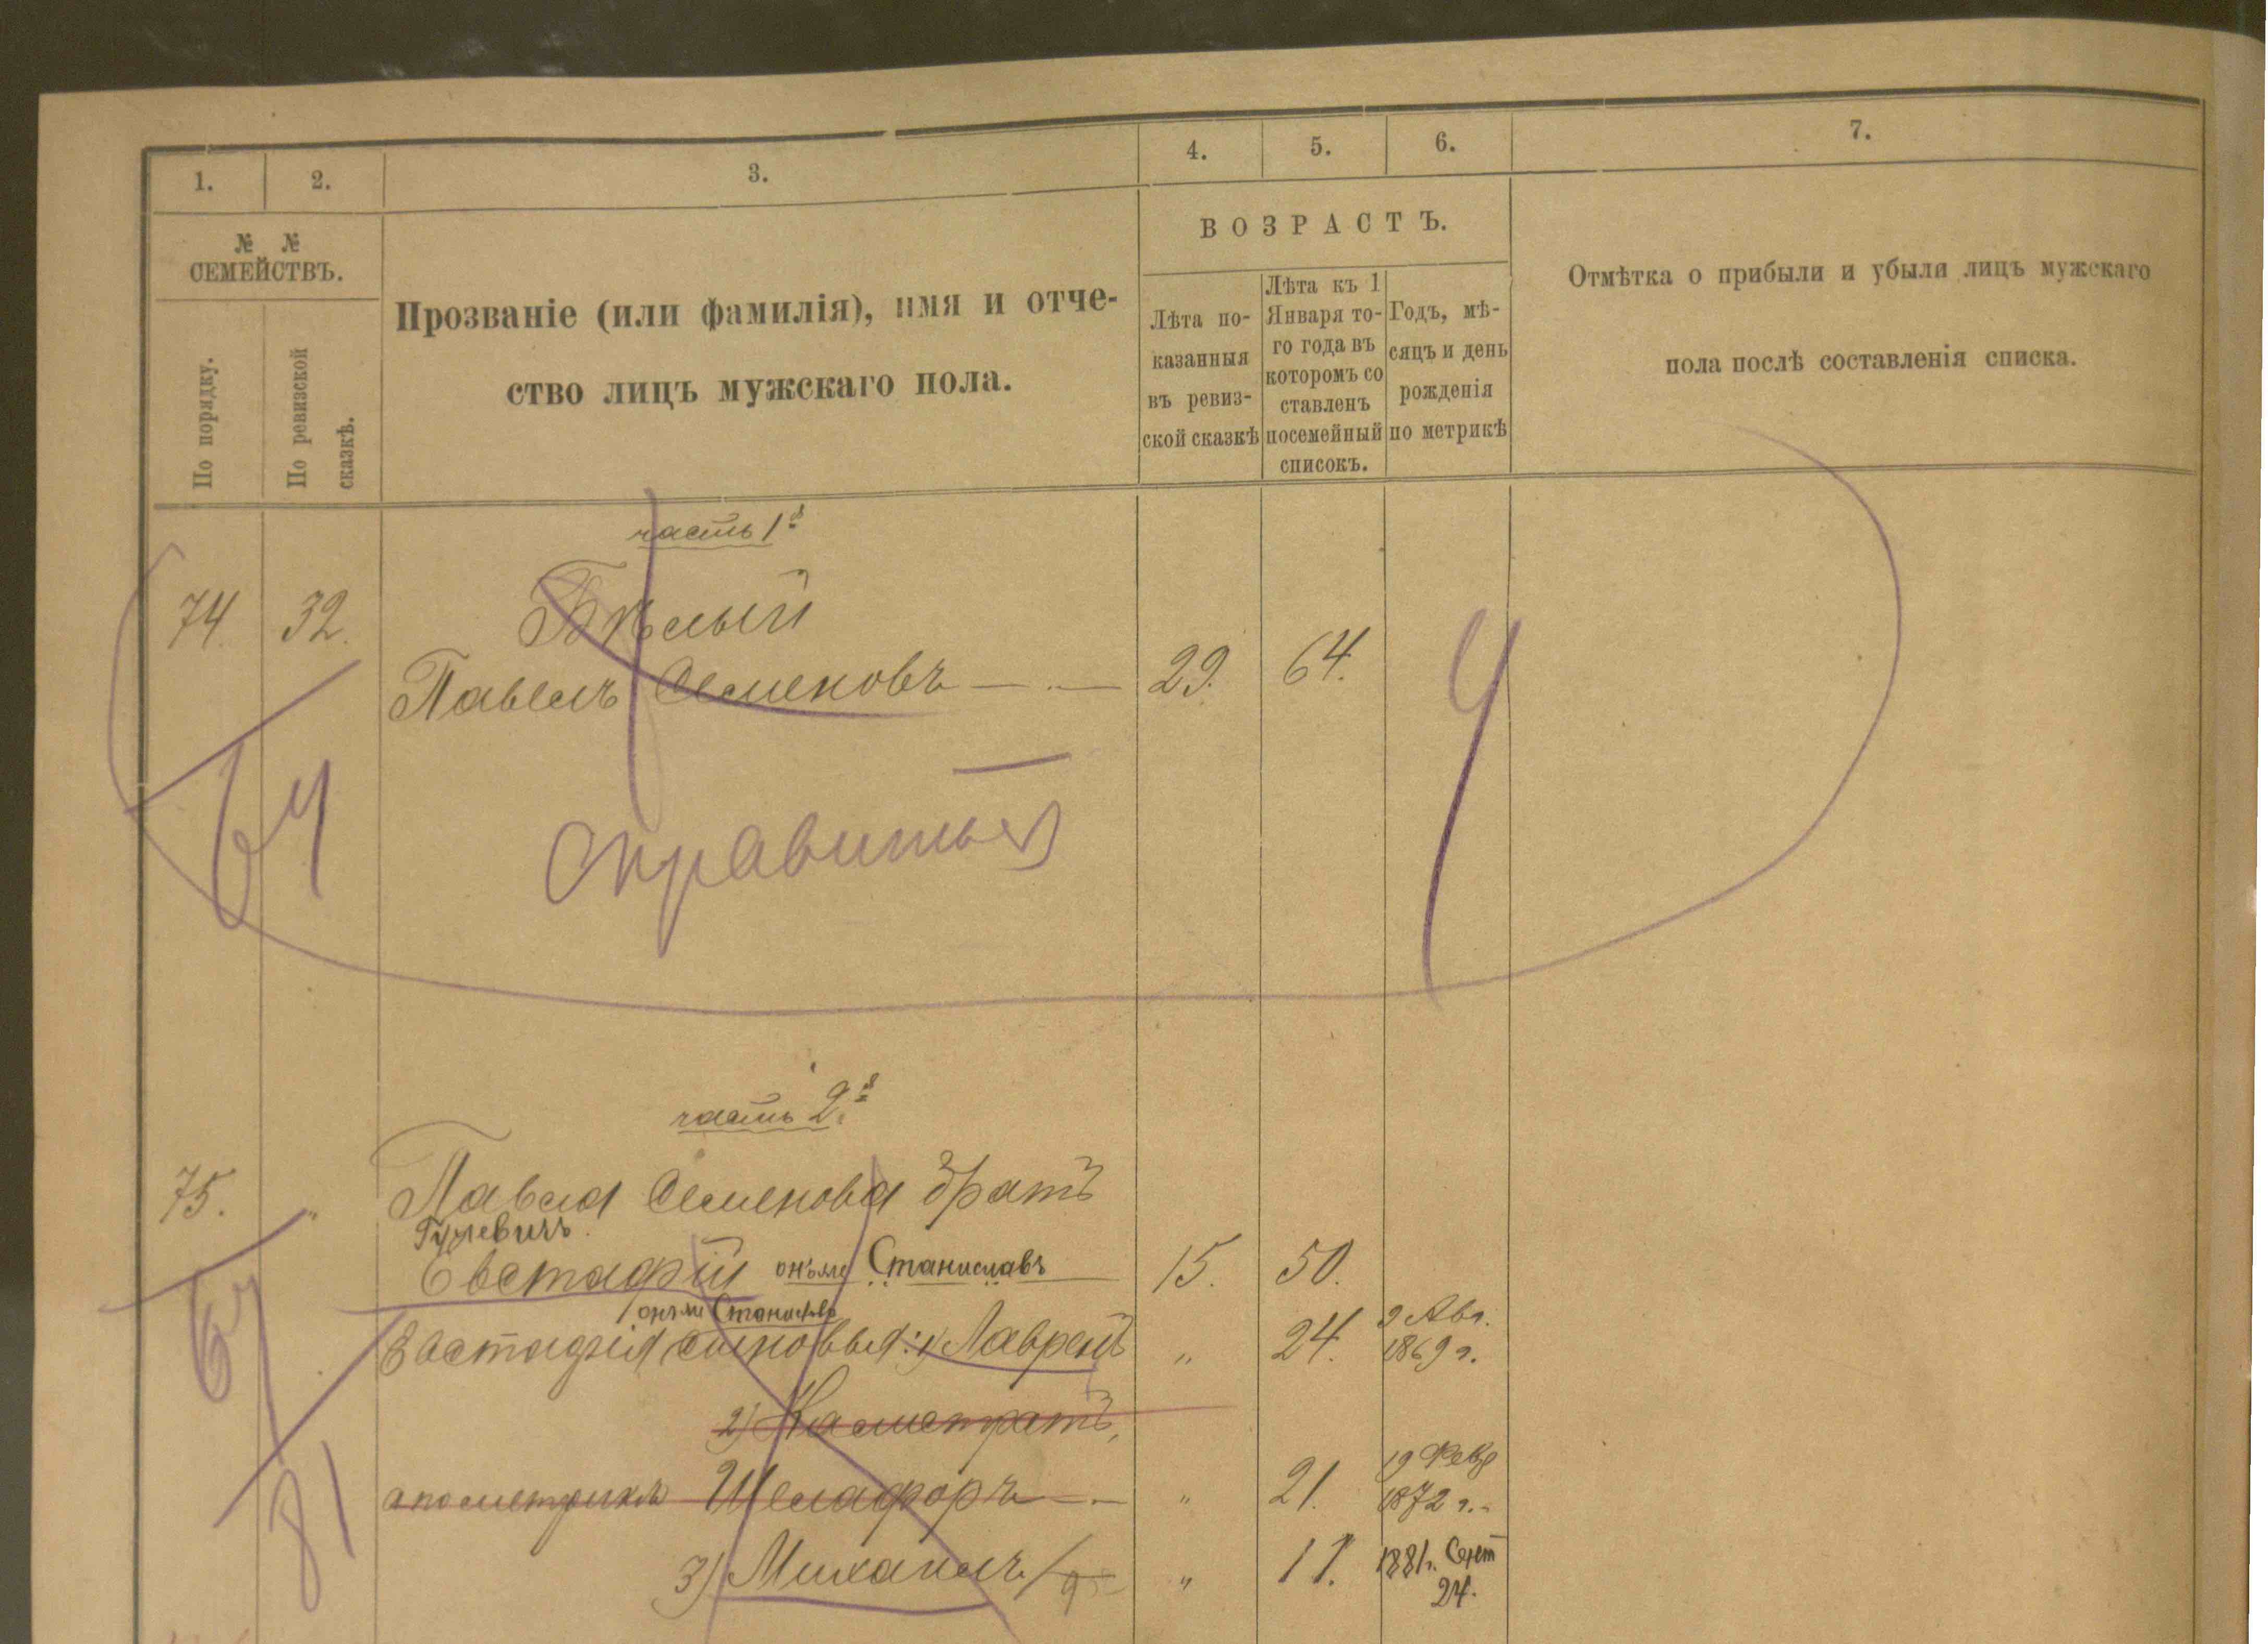 1. 2. 3. 4. 5. 6. 7.
№ № СЕМЕЙСТВЪ.
По порядку.
По ревизской сказкѣ.
Прозваніе (или фамилія), имя и отче-
ство лицъ мужскаго пола.
ВОЗРАСТЪ.
Лѣта по-
казанныя
въ ревиз-
ской сказкѣ
Лѣта къ 1
Января то-
го года въ
которомъ со
ставленъ
посемейный
списокъ.
Годъ, мѣ-
сяцъ и день
рожденія
по метрикѣ
Отмѣтка о прибыли и убыли лицъ мужскаго
пола послѣ составленія списка.
часть 1я
74. 32. Бѣлый
Павелъ Семеновъ 29. 64.
Справиться
часть 2я
75. " Павла Семенова братъ
Евстафій онъже Станиславъ 15. 50.
онъже
Евстафія сыновья: 1) Лаврент " 24. 9 Авг.
1869 г.
2)
а по метрикѣ " 21. 19 Февр
1872 г.
3) Михаилъ " 11. 1881г. Сент
24.
81